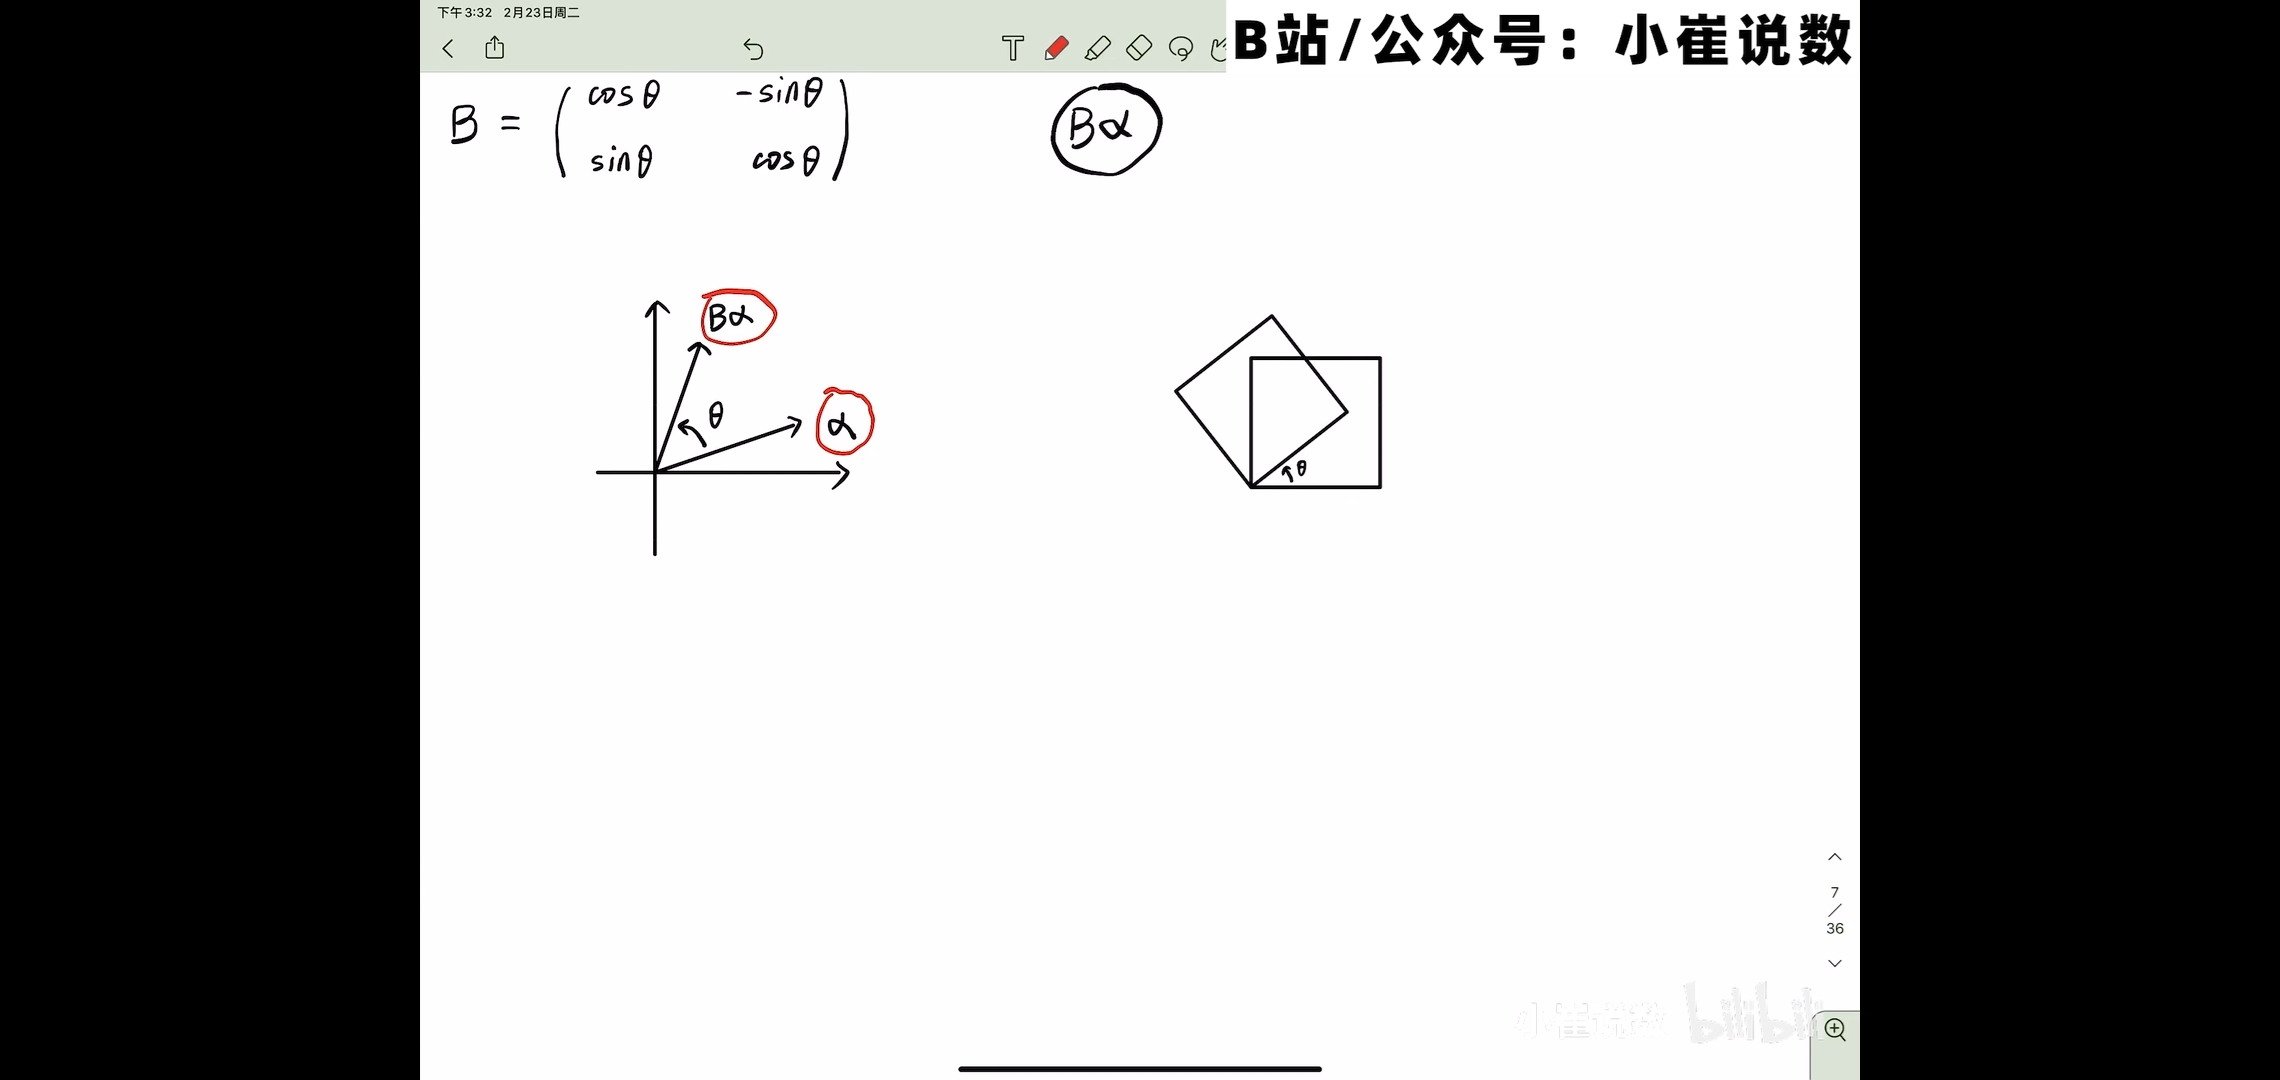 下午3:32 2月23日周二
B站/公众号：小崔说数
T
B = ( cosθ -sinθ
sinθ cosθ )
Bα
Bα
θ
α
θ
7
/
36
小崔说数 bilibili